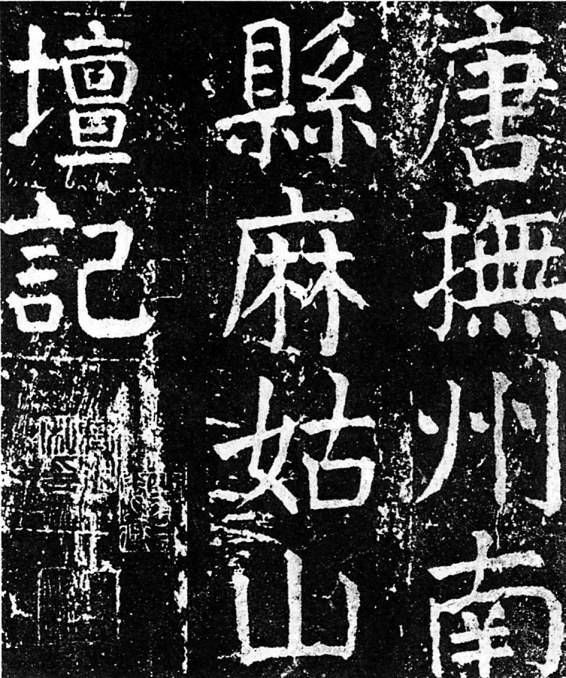 唐撫州南
縣麻姑山
壇記